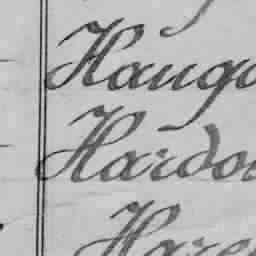 Hauga
Hardo
Hare